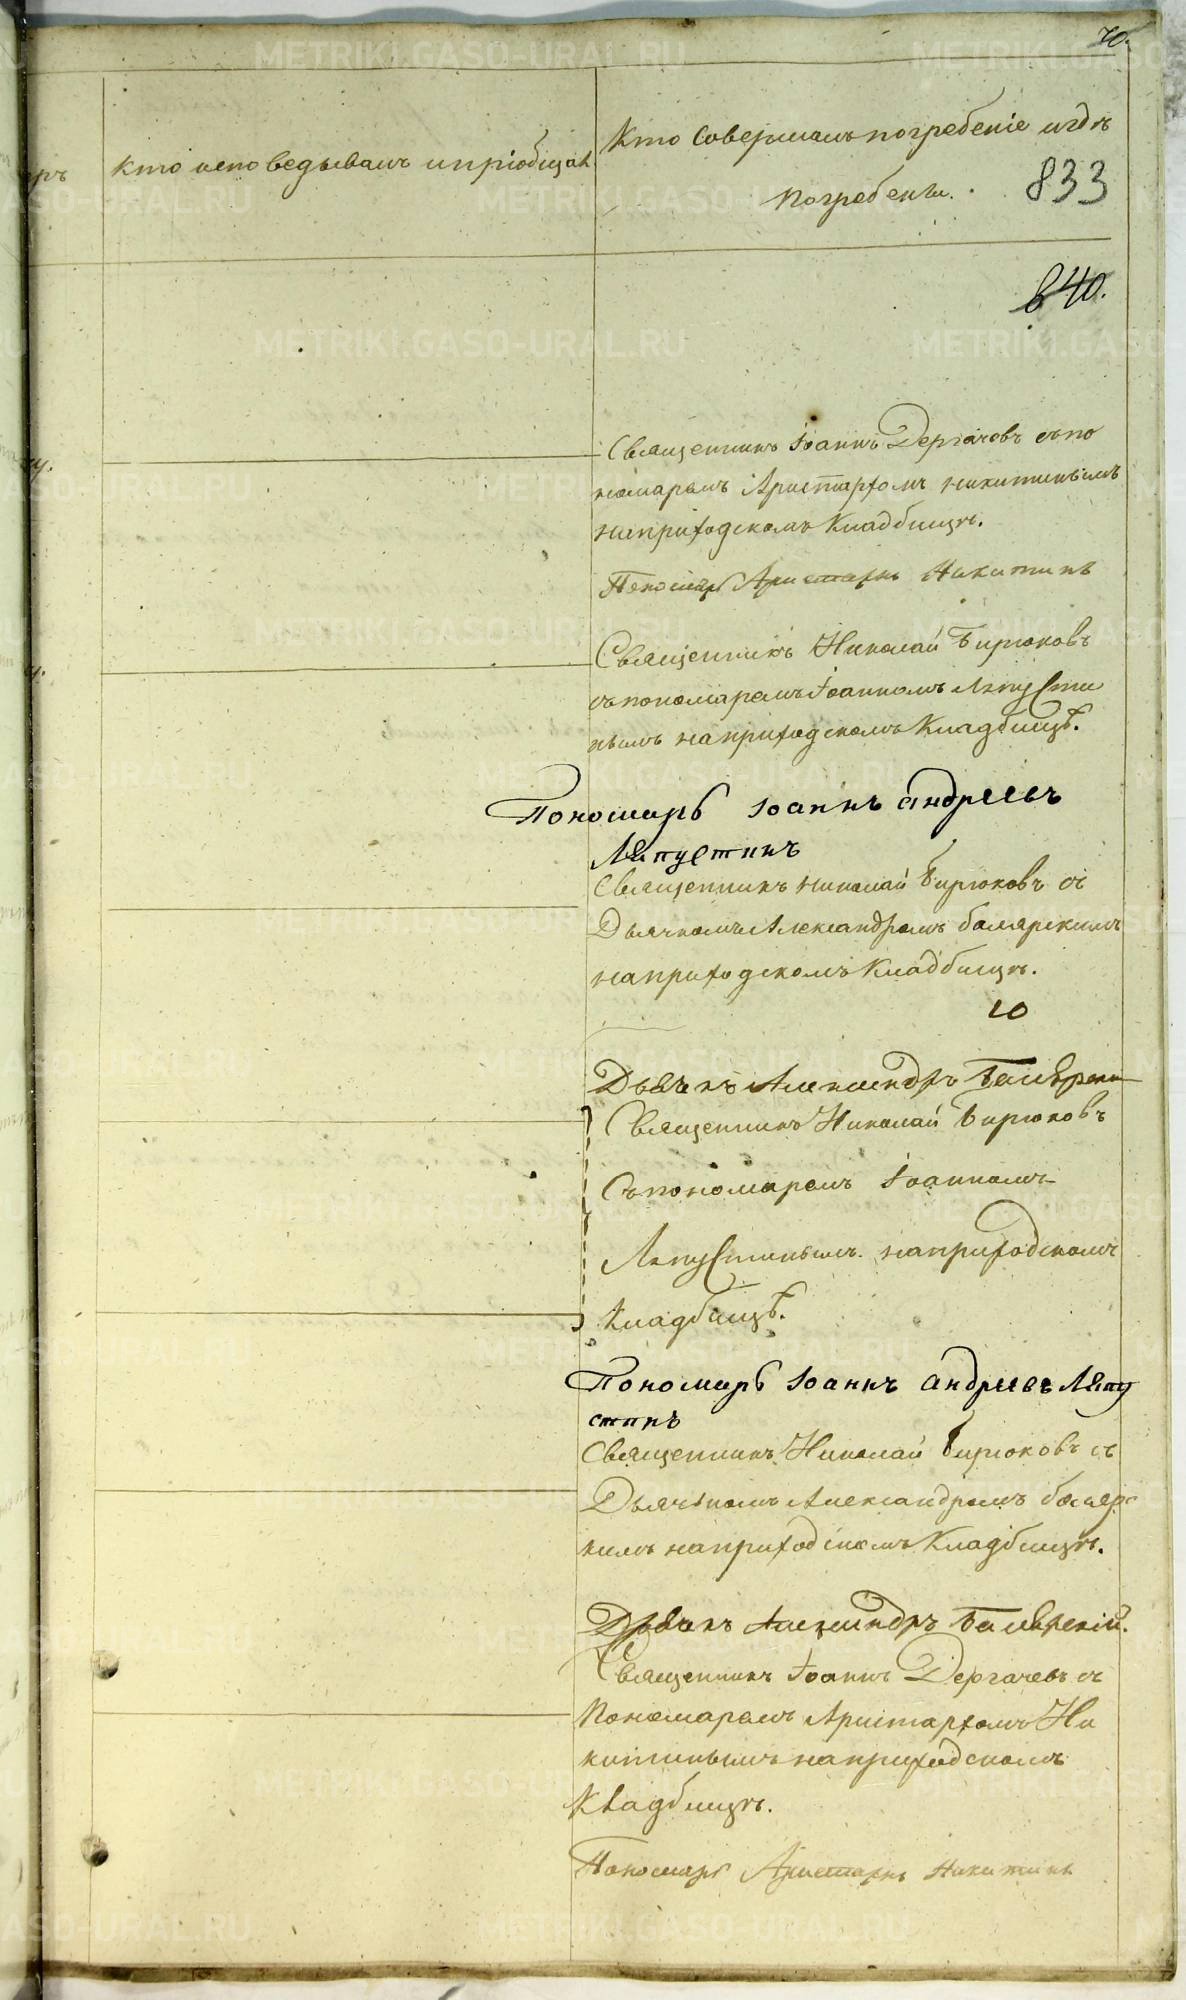 70.
Кто исповедывалъ и пріобщал
Кто совершалъ погребеніе и гдѣ
погребены.
833
840.
Священникъ Іоаннъ Дергачовъ съ по
номаремъ Аристархомъ Никитинымъ
на приходскомъ Кладбищѣ.
Пономарь Аристархъ Никитинъ
Священникъ Николай Бирюковъ
съ пономаремъ Іоанномъ Ляпусти
нымъ на приходскомъ Кладбищѣ.
Пономарь Іоаннъ Андреевъ
Ляпустинъ
Священникъ Николай Бирюковъ съ
Дьячкомъ Александромъ Боярскимъ
на приходскомъ Кладбищѣ.
10
Дьячекъ Александръ
Священникъ Николай Бирюковъ
Съ пономаремъ Іоанномъ
Ляпустинымъ на приходскомъ
Кладбищѣ.
Пономарь Іоаннъ Андреевъ Ляпу
стинъ
Священникъ Николай Бирюковъ съ
Дьячкомъ Александромъ
кимъ на приходскомъ Кладбищѣ.
Дьячекъ Александръ
Священникъ Іоаннъ Дергачевъ съ
Пономаремъ Аристархомъ Ни
китинымъ на приходскомъ
Кладбищѣ.
Пономарь Аристархъ Никитинъ
METRIKI.GASO-URAL.RU